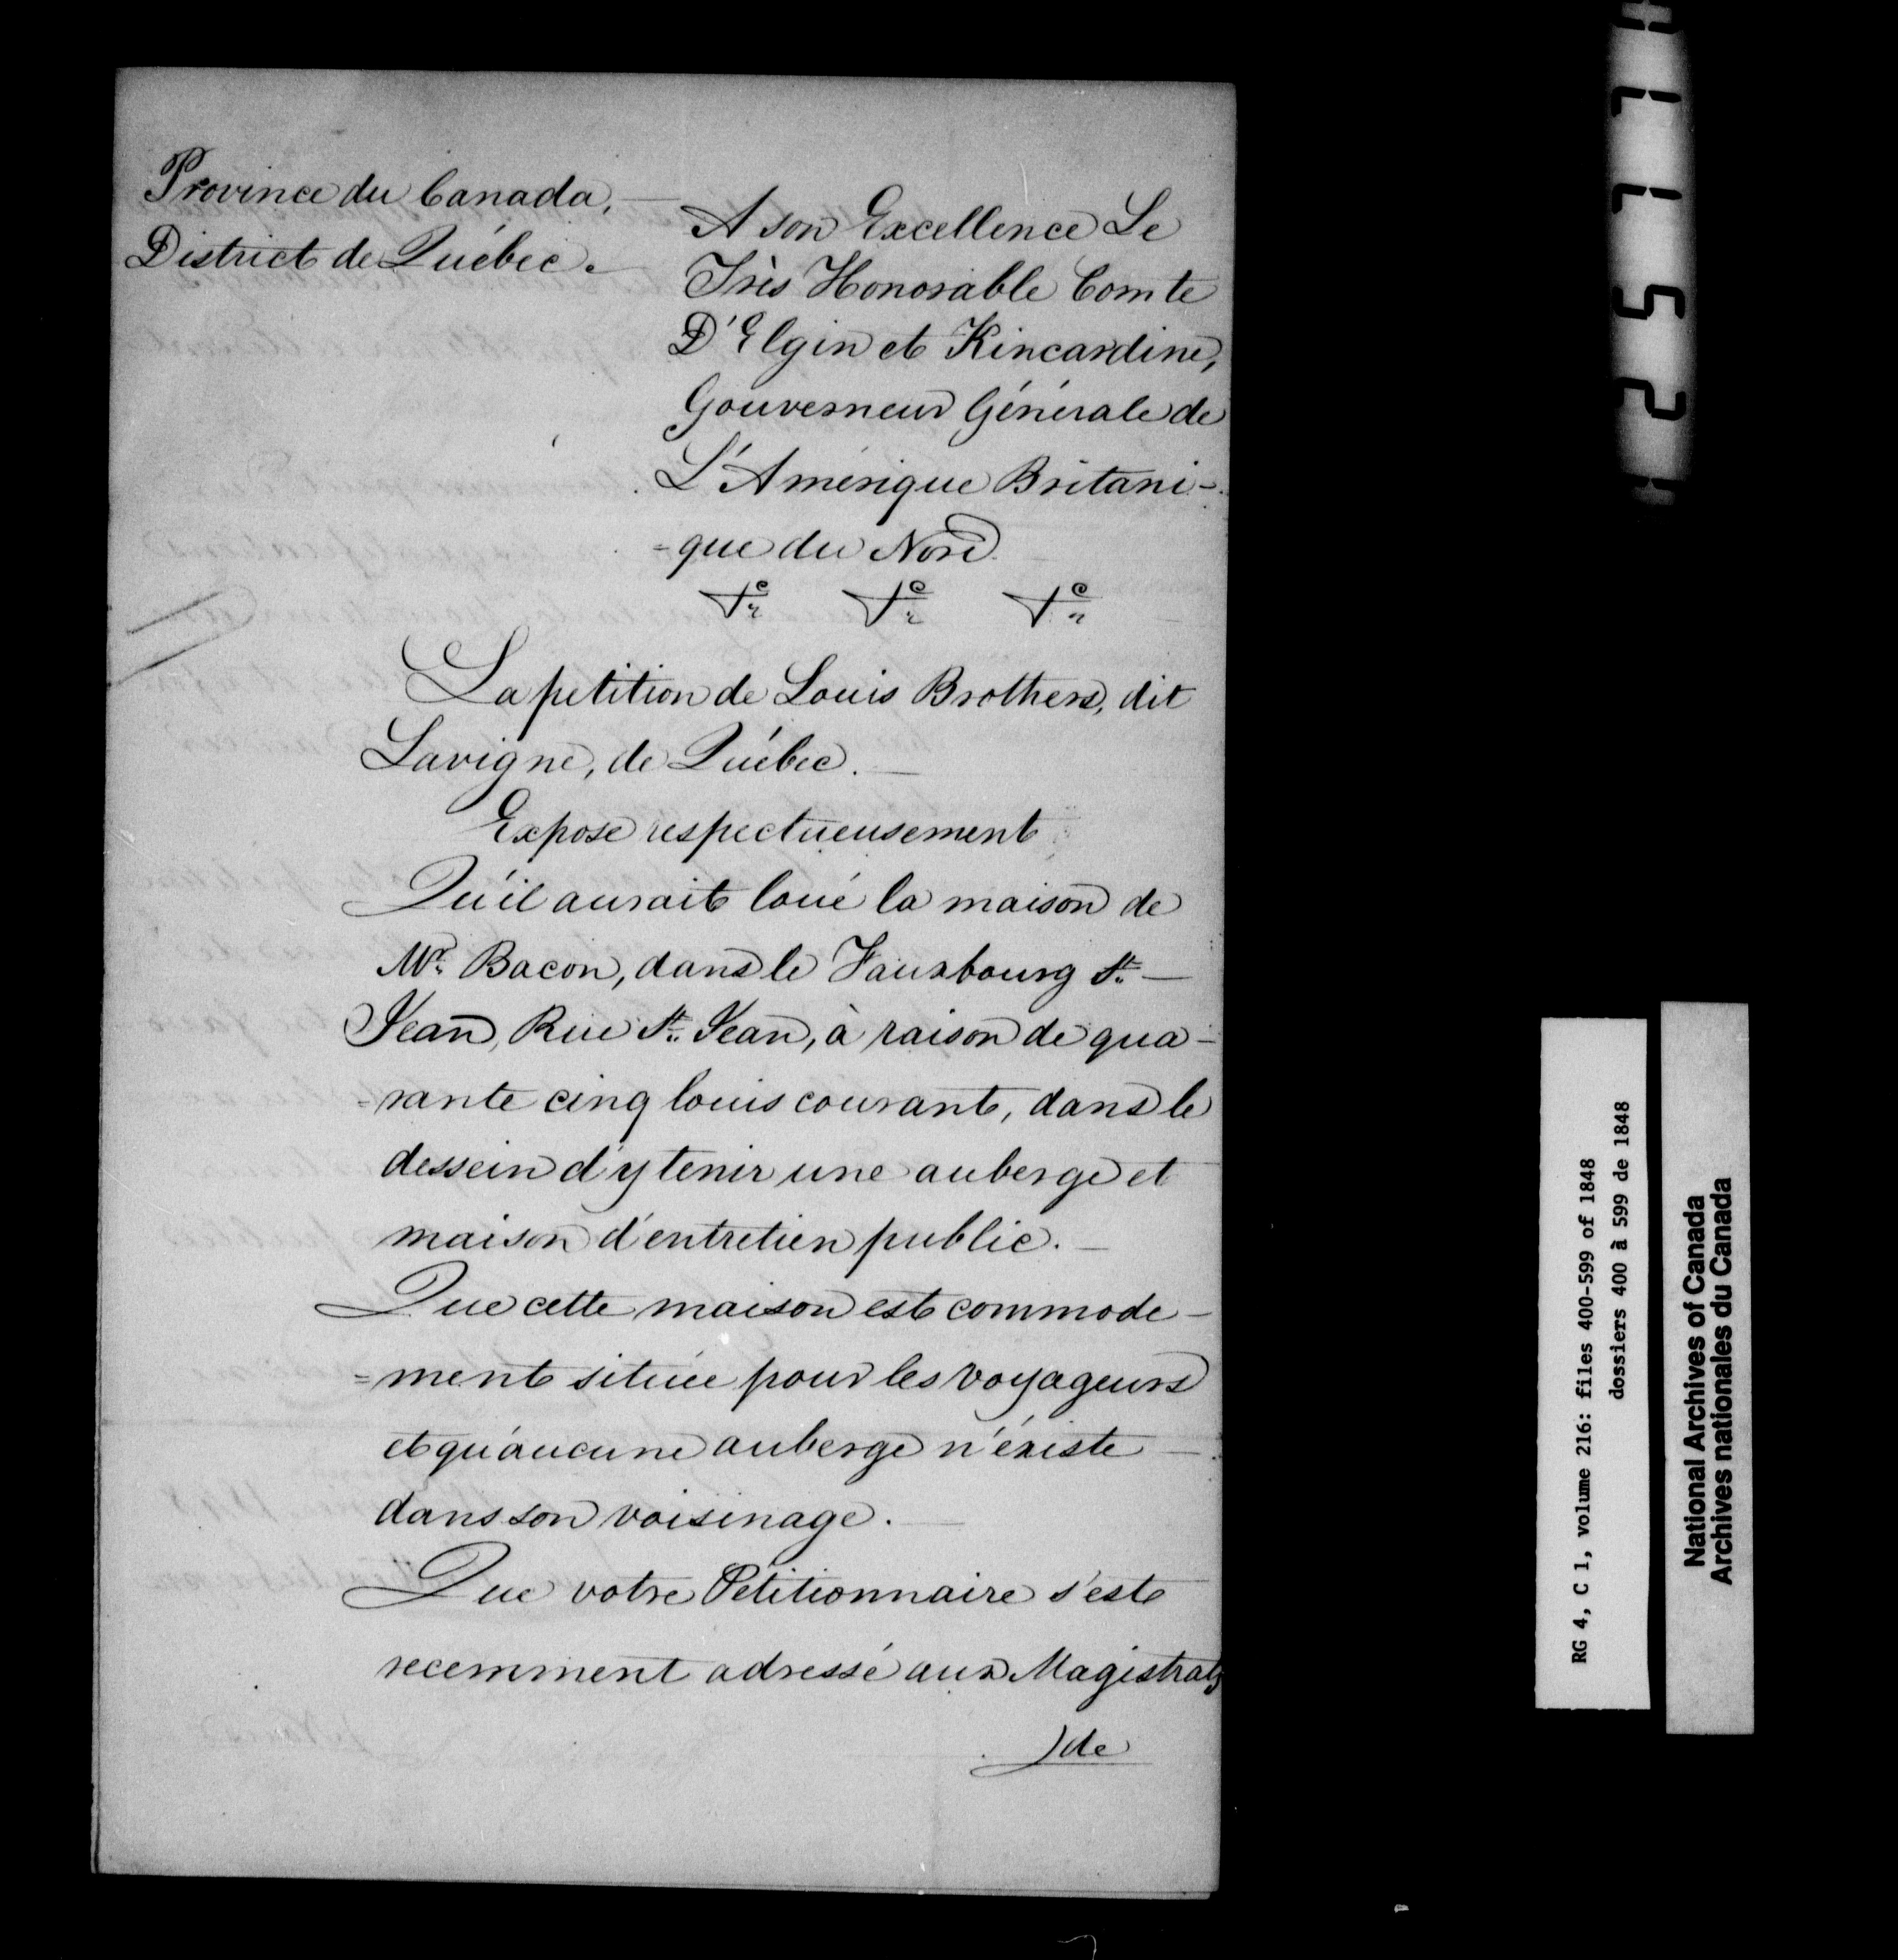 Province du Canada,
District de Québec.
A son Excellence Le
Très Honorable Comte
D'Elgin et Kincardine,
Gouverneur Générale de
L'Amérique Britani-
-que du Nord.
&c &c &c
La petition de Louis Brothers, dit
Lavigne, de Québec.
Expose respectueusement
Qu'il aurait loué la maison de
Mr. Bacon, dans le Fauxbourg St.
Jean, Rue St. Jean, à raison de qua-
-rante cinq louis courant, dans le
dessein d'y tenir une auberge et
maison d'entretien public.
Que cette maison est commode-
=ment située pour les voyageurs
et qu'aucune auberge n'éxiste
dans son voisinage.
Que votre Pétitionnaire s'est
recemment adressé aux Magistrats
/de
RG 4, C 1, volume 216: files 400-599 of 1848
dossiers 400 à 599 de 1848
National Archives of Canada
Archives nationales du Canada